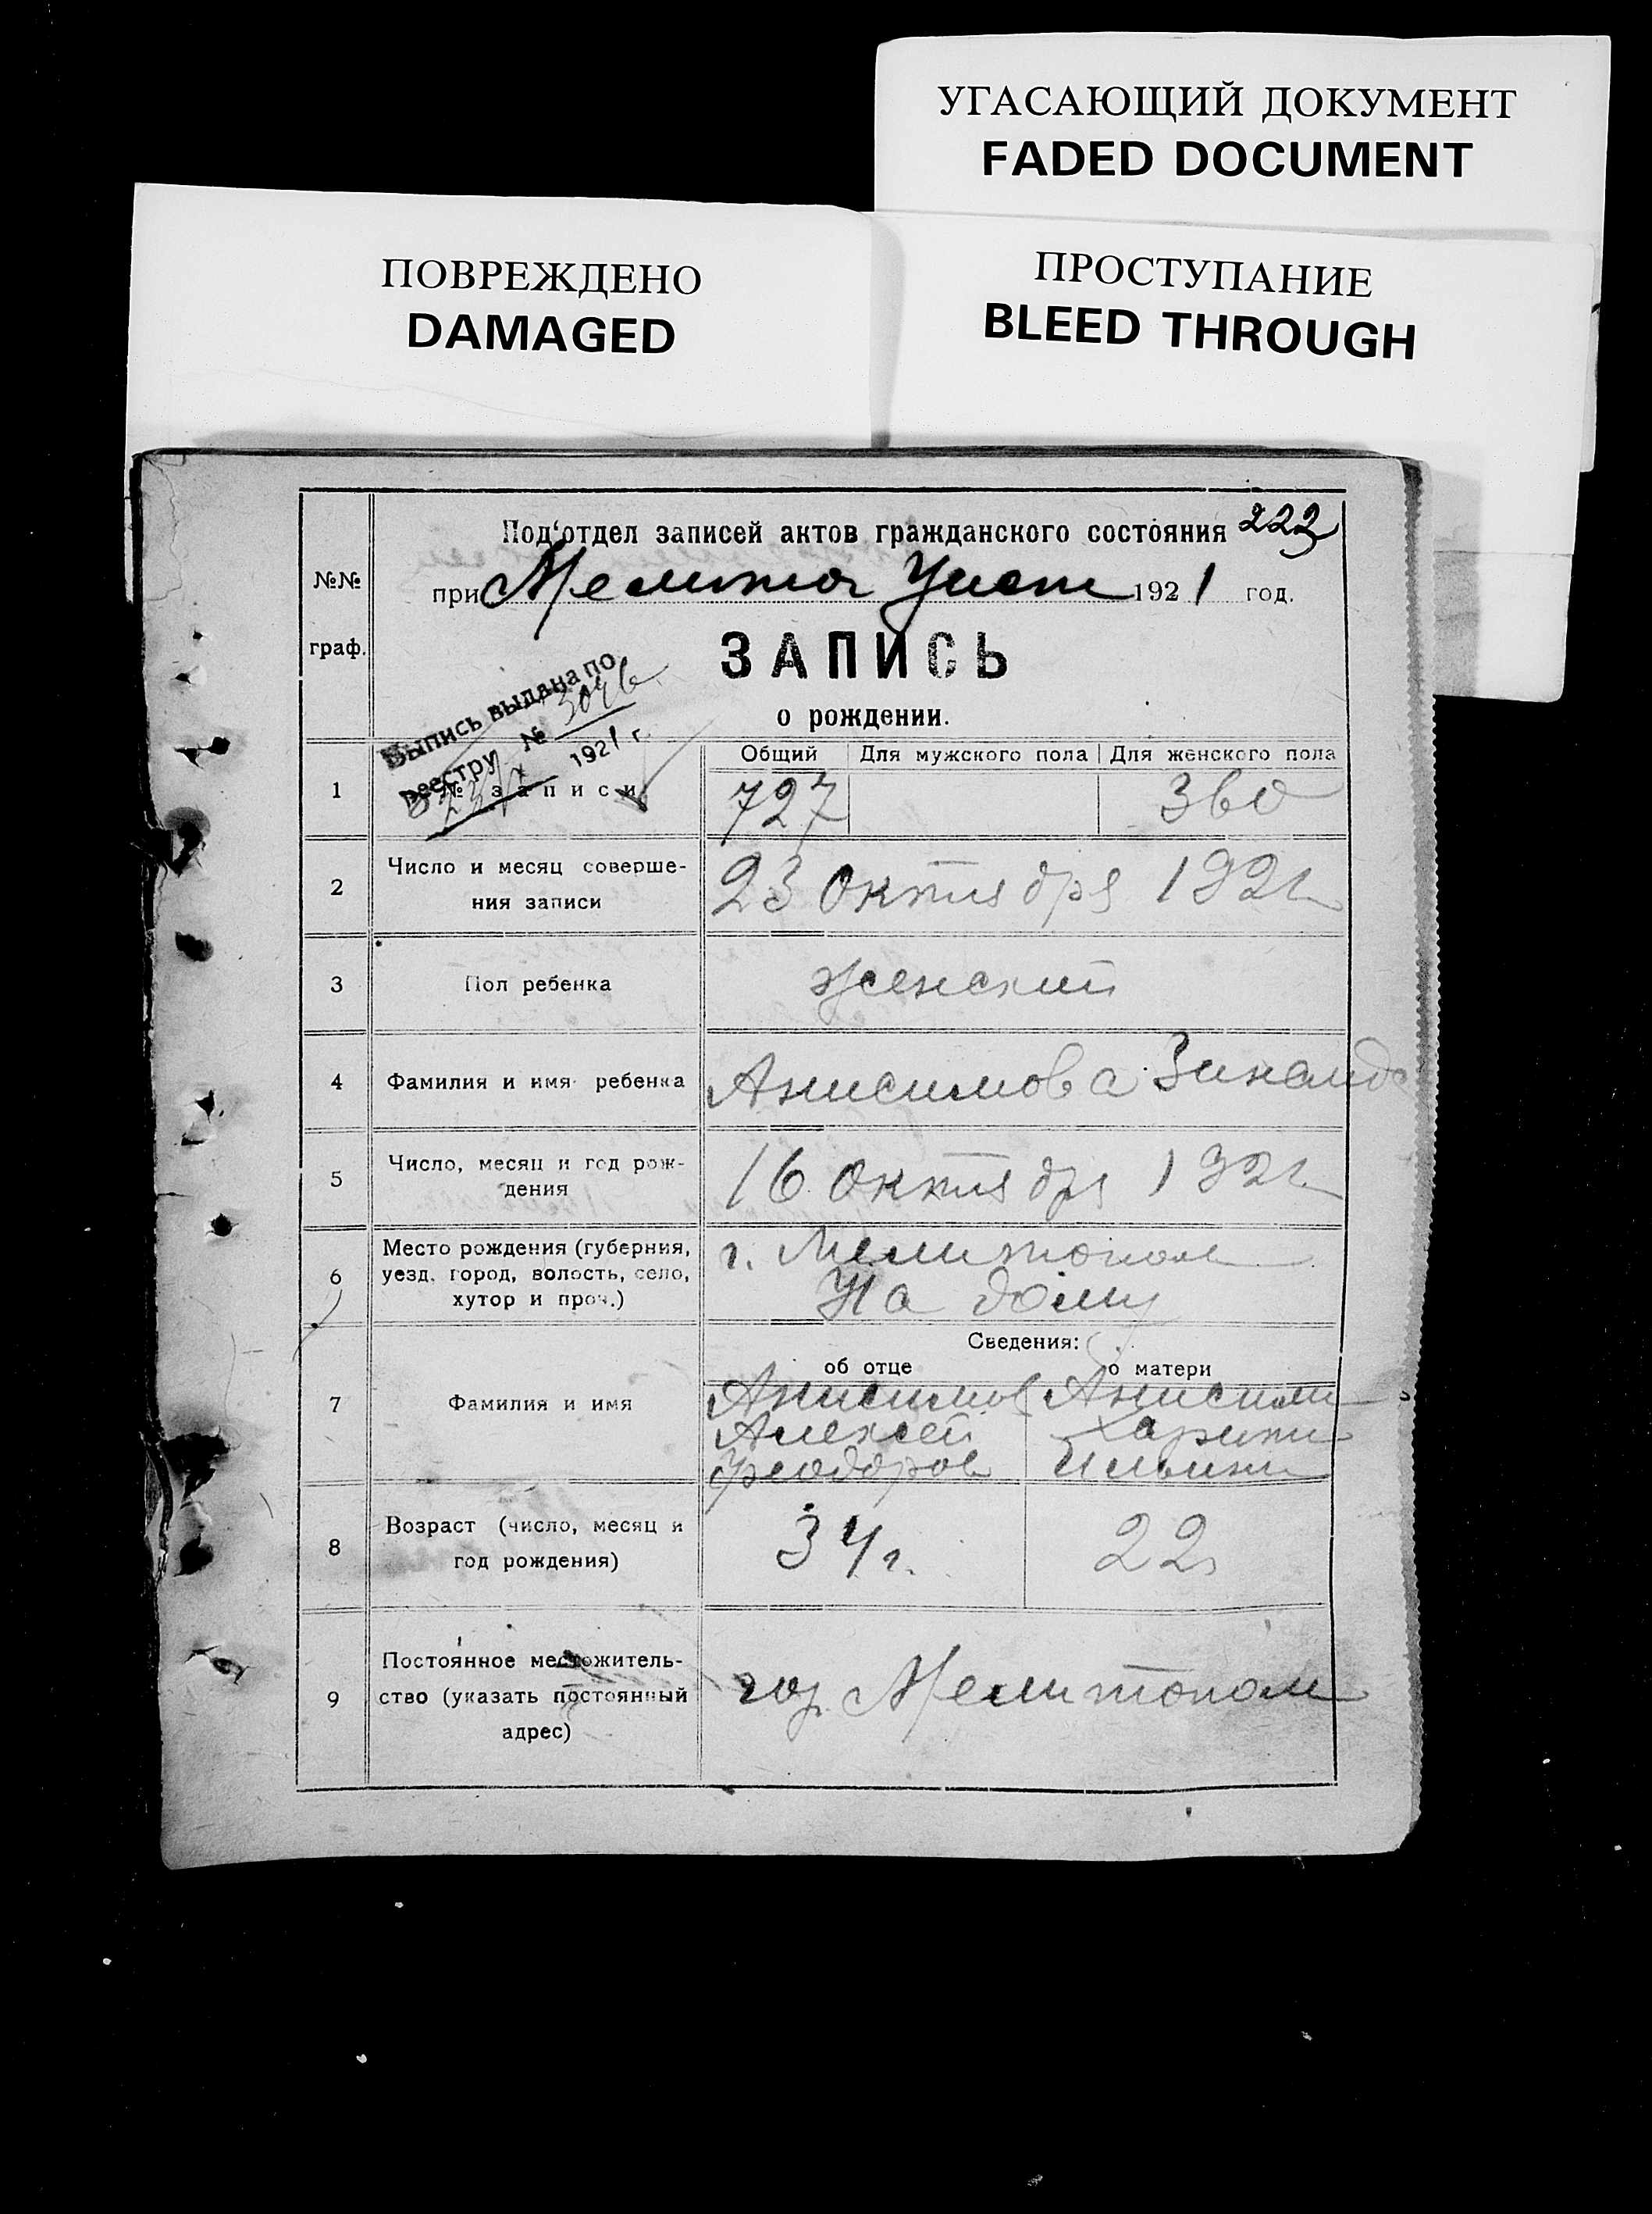 УГАСАЮЩИЙ ДОКУМЕНТ
FADED DOCUMENT
ПОВРЕЖДЕНО
DAMAGED
ПРОСТУПАНИЕ
BLEED THROUGH
Под‘отдел записей актов гражданского состояния 222
№№
граф.
при Мелитоп 1921 год.
ЗАПИСЬ
о рождении.
Выпись выдана по
реестру № 3046
1921 г.
Общий Для мужского пола Для женского пола
1 № записи 727 360
2 Число и месяц соверше-
ния записи
23 Октября 1921
3 Пол ребенка женский
4 Фамилия и имя ребенка Анисимова Зинаида
5 Число, месяц и год рож-
дения
16 Октября 1921
6 Место рождения (губерния,
уезд, город, волость, село,
хутор и проч.)
г. Мелитополь
На дому
Сведения:
об отце о матери
7 Фамилия и имя
Анисимов Анисим
Алексей
Феодоров
8 Возраст (число, месяц и
год рождения)
34 г. 22
9 Постоянное местожитель-
ство (указать постоянный
адрес)
гор. Мелитополь